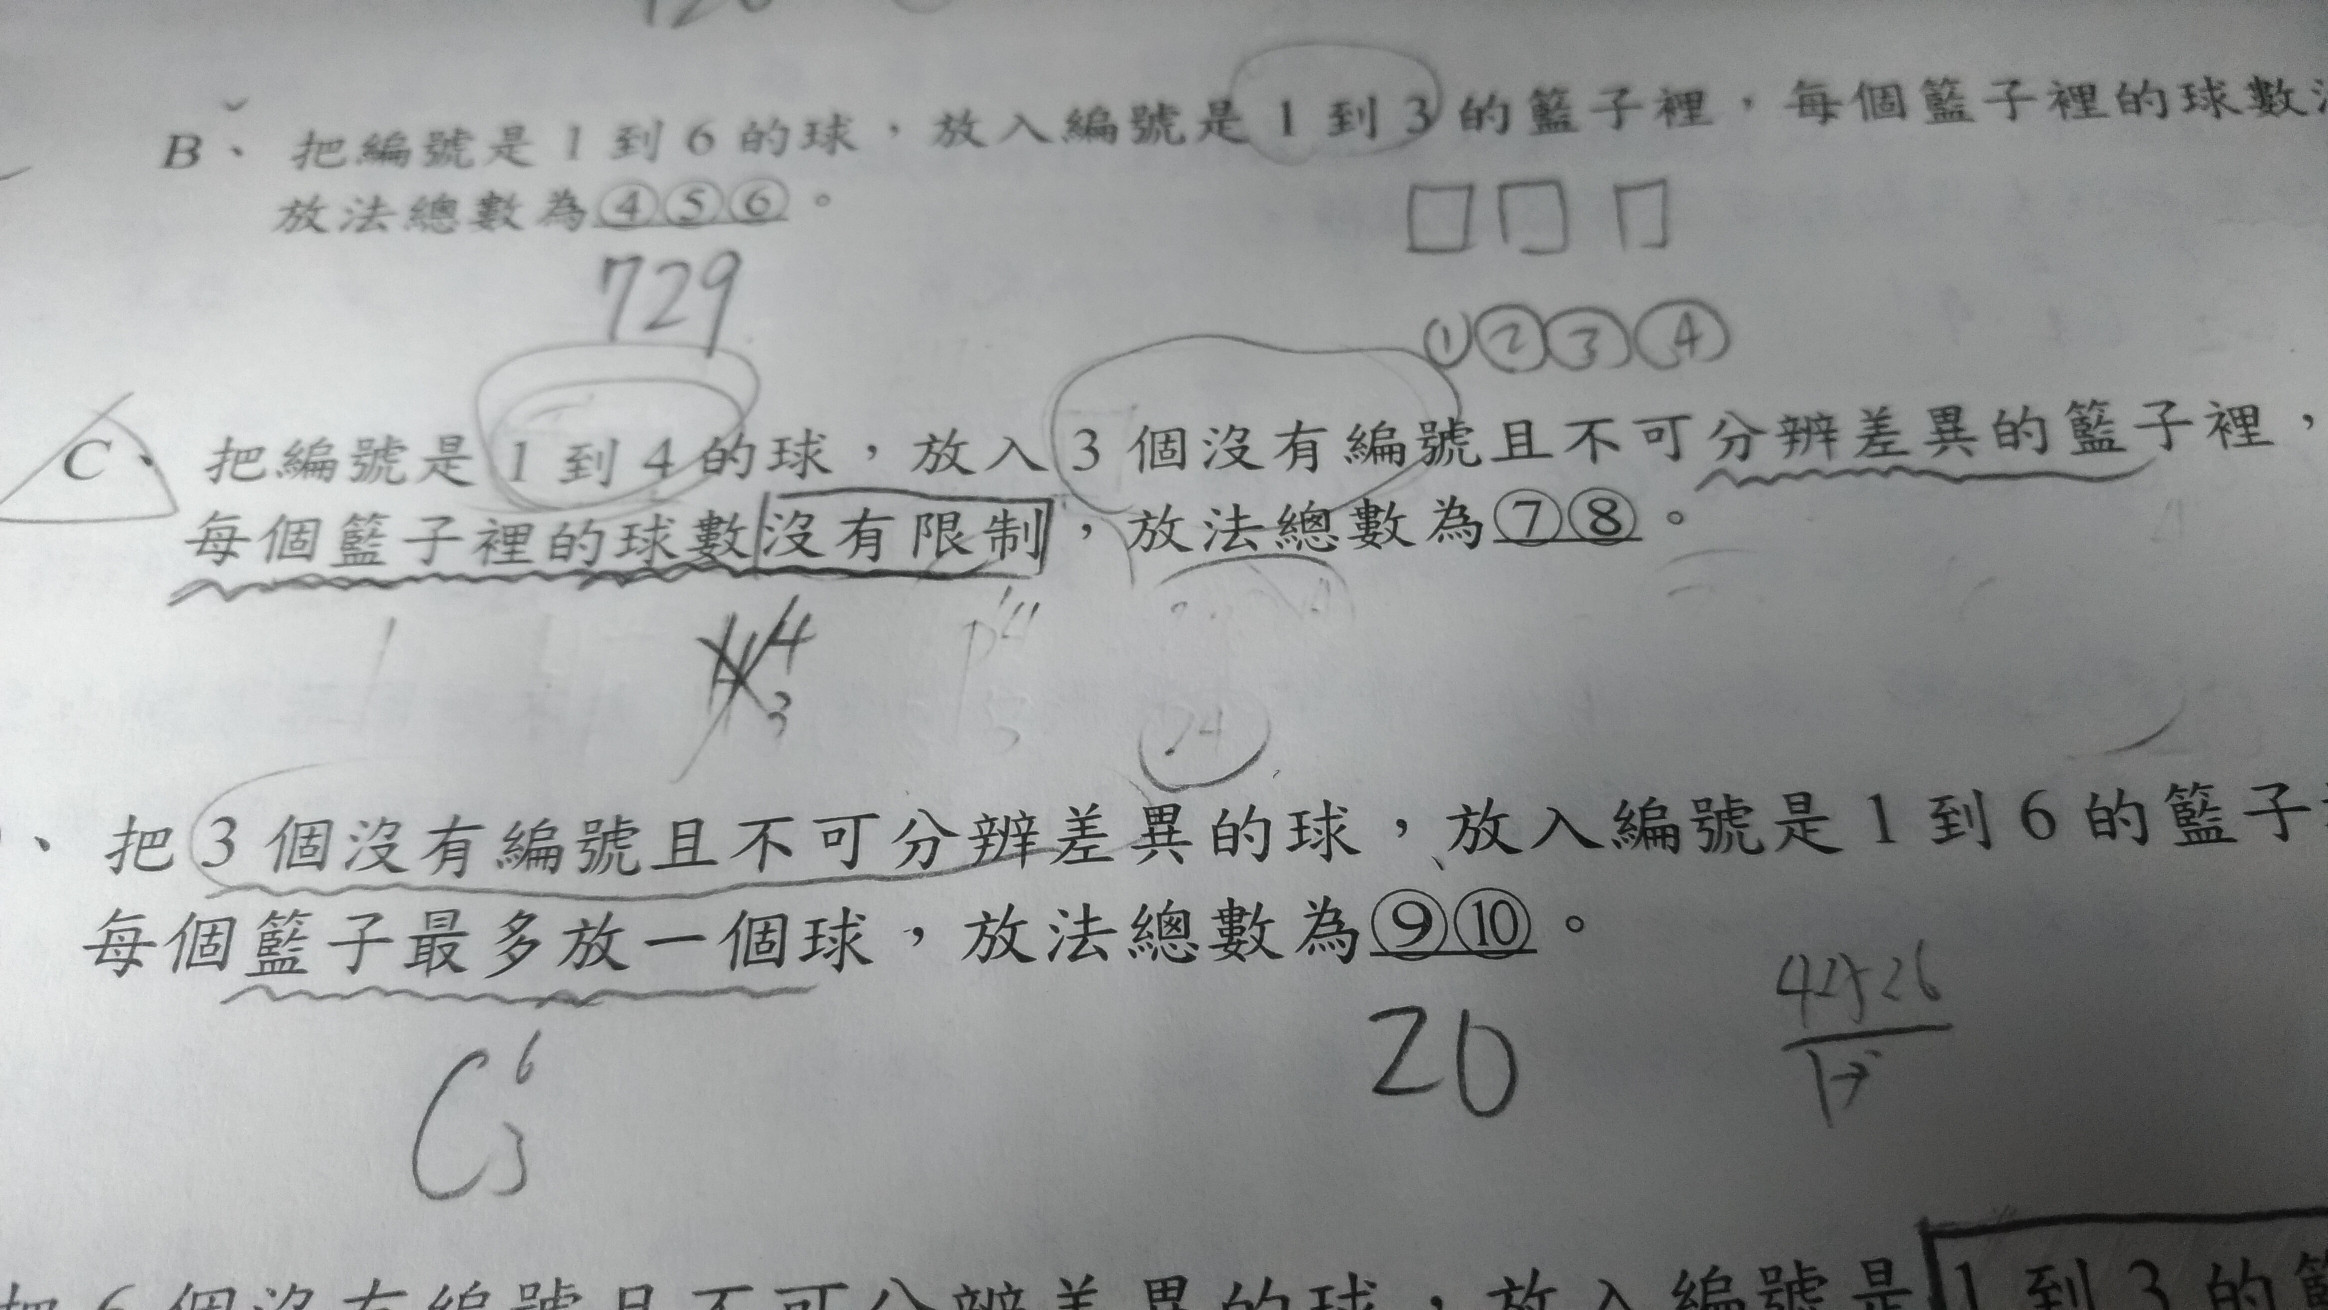 B、把編號是1到6的球，放入編號是1到3的籃子裡，每個籃子裡的球數
放法總數為④⑤⑥。
729
①②③④
C、把編號是1到4的球，放入3個沒有編號且不可分辨差異的籃子裡，
每個籃子裡的球數沒有限制，放法總數為⑦⑧。
H 4 3
、把3個沒有編號且不可分辨差異的球，放入編號是1到6的籃子
每個籃子最多放一個球，放法總數為⑨⑩。
C 6 3
20
把6個沒有編號且不可分辨差異的球，放入編號是1到3的籃